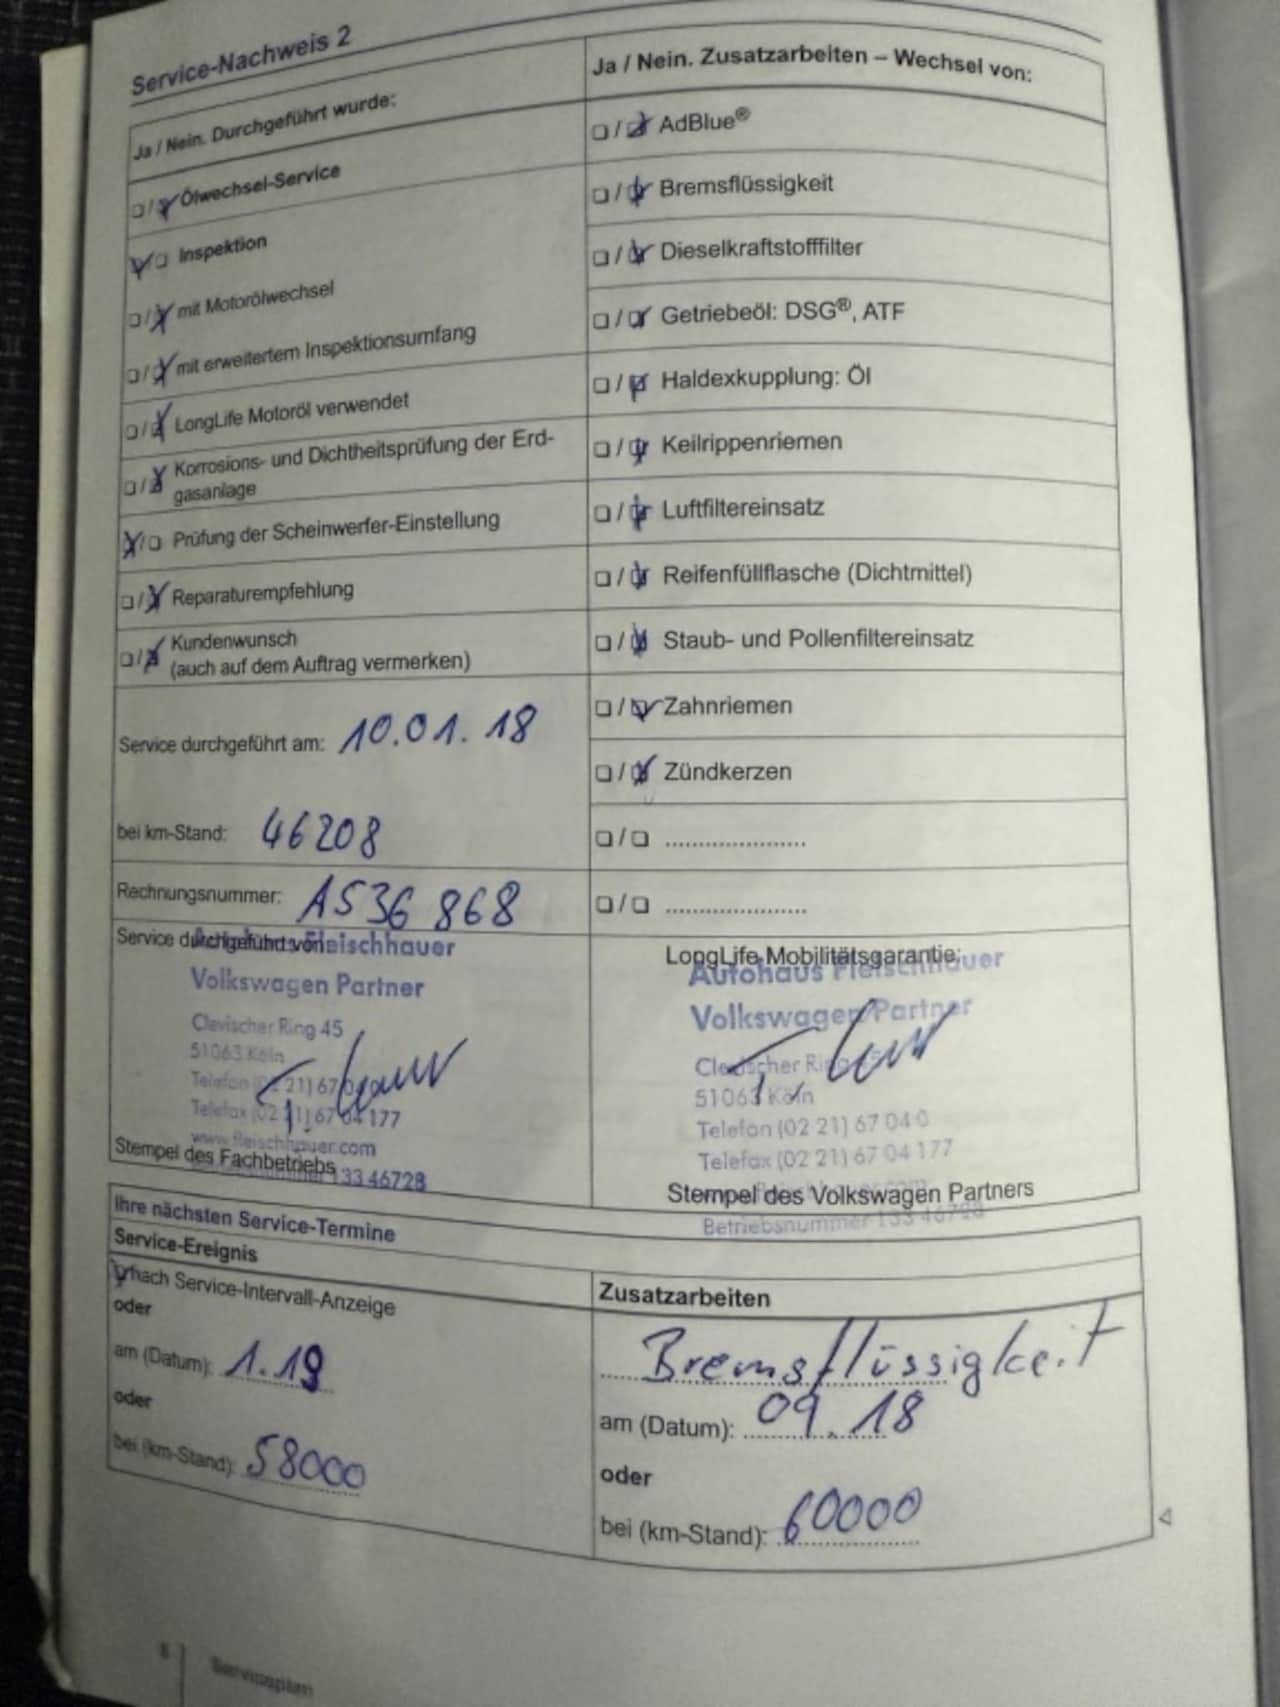 Service-Nachweis 2
Ja / Nein. Durchgeführt wurde:
❑/❑ Ölwechsel-Service
❑/❑ Inspektion
❑/❑ mit Motorölwechsel
❑/❑ mit erweitertem Inspektionsumfang
❑/❑ LongLife Motoröl verwendet
❑/❑ Korrosions- und Dichtheitsprüfung der Erd-
gasanlage
❑/❑ Prüfung der Scheinwerfer-Einstellung
❑/❑ Reparaturempfehlung
❑/❑ Kundenwunsch
(auch auf dem Auftrag vermerken)
Service durchgeführt am: 10.01.18
bei km-Stand: 46208
Rechnungsnummer: AS36868
Service durchgeführt von:
Fleischhauer
Volkswagen Partner
Clevischer Ring 45
51063 Köln
Telefon (02 21) 67 04
Telefax (02 21) 67 04 177
www.fleischhauer.com
Stempel des Fachbetriebs
133 46728
Ja / Nein. Zusatzarbeiten – Wechsel von:
❑/❑ AdBlue®
❑/❑ Bremsflüssigkeit
❑/❑ Dieselkraftstofffilter
❑/❑ Getriebeöl: DSG®, ATF
❑/❑ Haldexkupplung: Öl
❑/❑ Keilrippenriemen
❑/❑ Luftfiltereinsatz
❑/❑ Reifenfüllflasche (Dichtmittel)
❑/❑ Staub- und Pollenfiltereinsatz
❑/❑ Zahnriemen
❑/❑ Zündkerzen
❑/❑ .....................
❑/❑ .....................
LongLife Mobilitätsgarantie:
Autohaus Fleischhauer
Volkswagen Partner
Clevischer Ring 45
51063 Köln
Telefon (02 21) 67 04 0
Telefax (02 21) 67 04 177
Stempel des Volkswagen Partners
Betriebsnummer 133 46728
Ihre nächsten Service-Termine
Service-Ereignis
nach Service-Intervall-Anzeige
oder
am (Datum): 1.19
oder
bei (km-Stand): 58000
Zusatzarbeiten
Bremsflüssigkeit
am (Datum): 09.18
oder
bei (km-Stand): 60000
Serviceplan